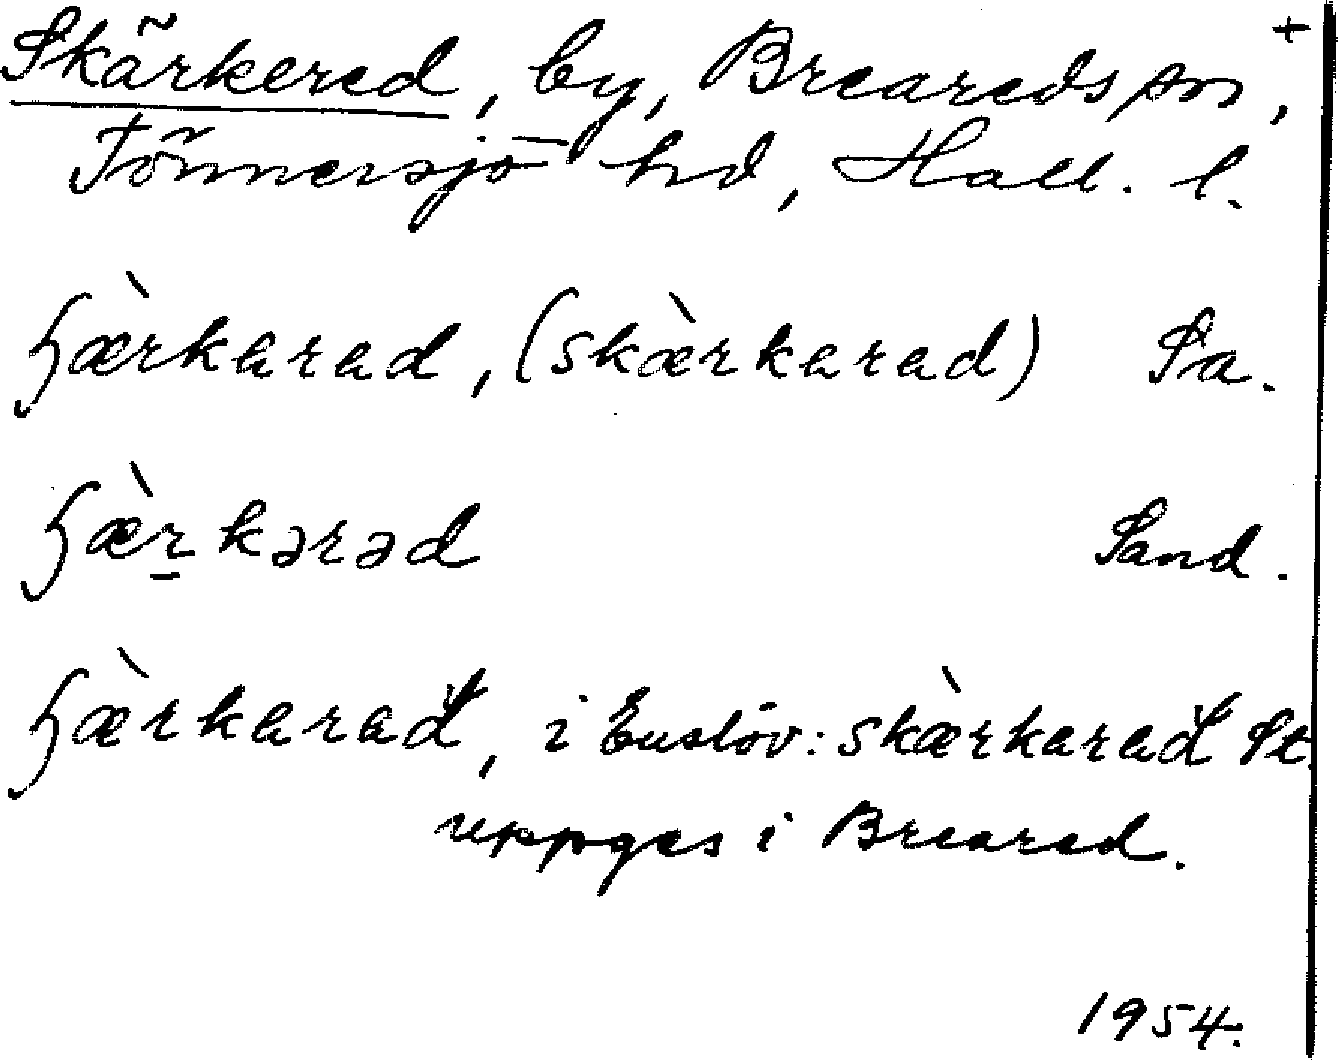 +
Skärkered, by, Breareds sn,
Tönnersjö hd, Hall. l.
ʃæ̀rkarad, (skæ̀rkarad) Sa.
ʃæ̀r̠kərəd Sand.
ʃæ̀rkarad, i Euslöv: skæ̀rkarad St.
uppges i Breared.
1954.